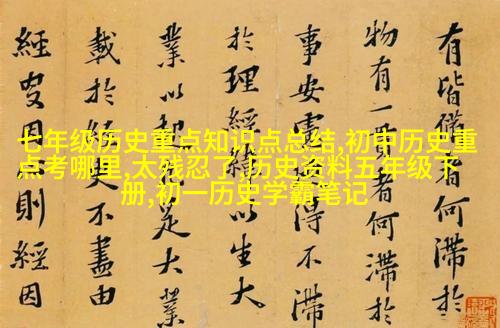 七年级历史重点知识点总结,初中历史重
点考哪里,太残忍了,历史资料五年级下
册,初一历史学霸笔记
有皆者何滯於
物有一者何滯於
事安得不滯
於理經以生大
業以足大業
載於不盡由
經因則經因